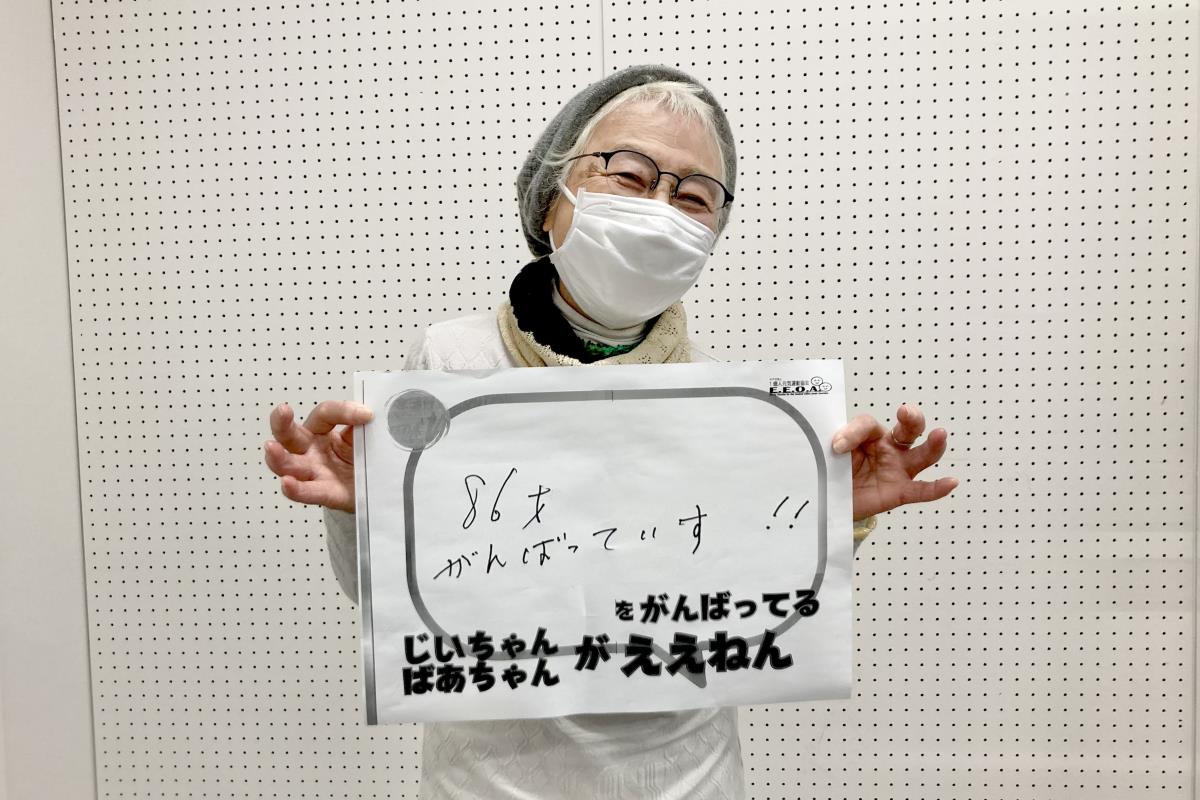 E.E.O.A
86才
がんばっていす !!
をがんばってる
じいちゃん
ばあちゃん
が ええねん